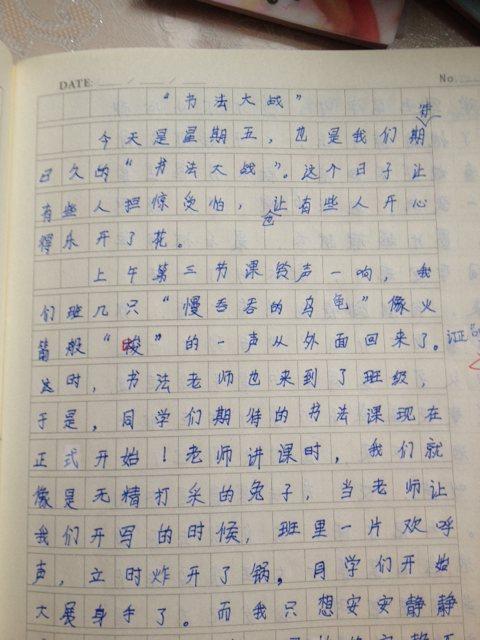 DATE: / / No.
“书法大战”
今天是星期五，也是我们期待
已久的“书法大战”。这个日子让
有些人担惊受怕，也让有些人开心
得乐开了花。
上午第三节课铃声一响，我
们班几只“慢吞吞的乌龟”像火
箭般“嗖”的一声从外面回来了。
这时，书法老师也来到了班级，
于是，同学们期待的书法课现在
正式开始！老师讲课时，我们就
像是无精打采的兔子，当老师让
我们开写的时候，班里一片欢呼
声，立时炸开了锅。同学们开始
大展身手了。而我只想安安静静